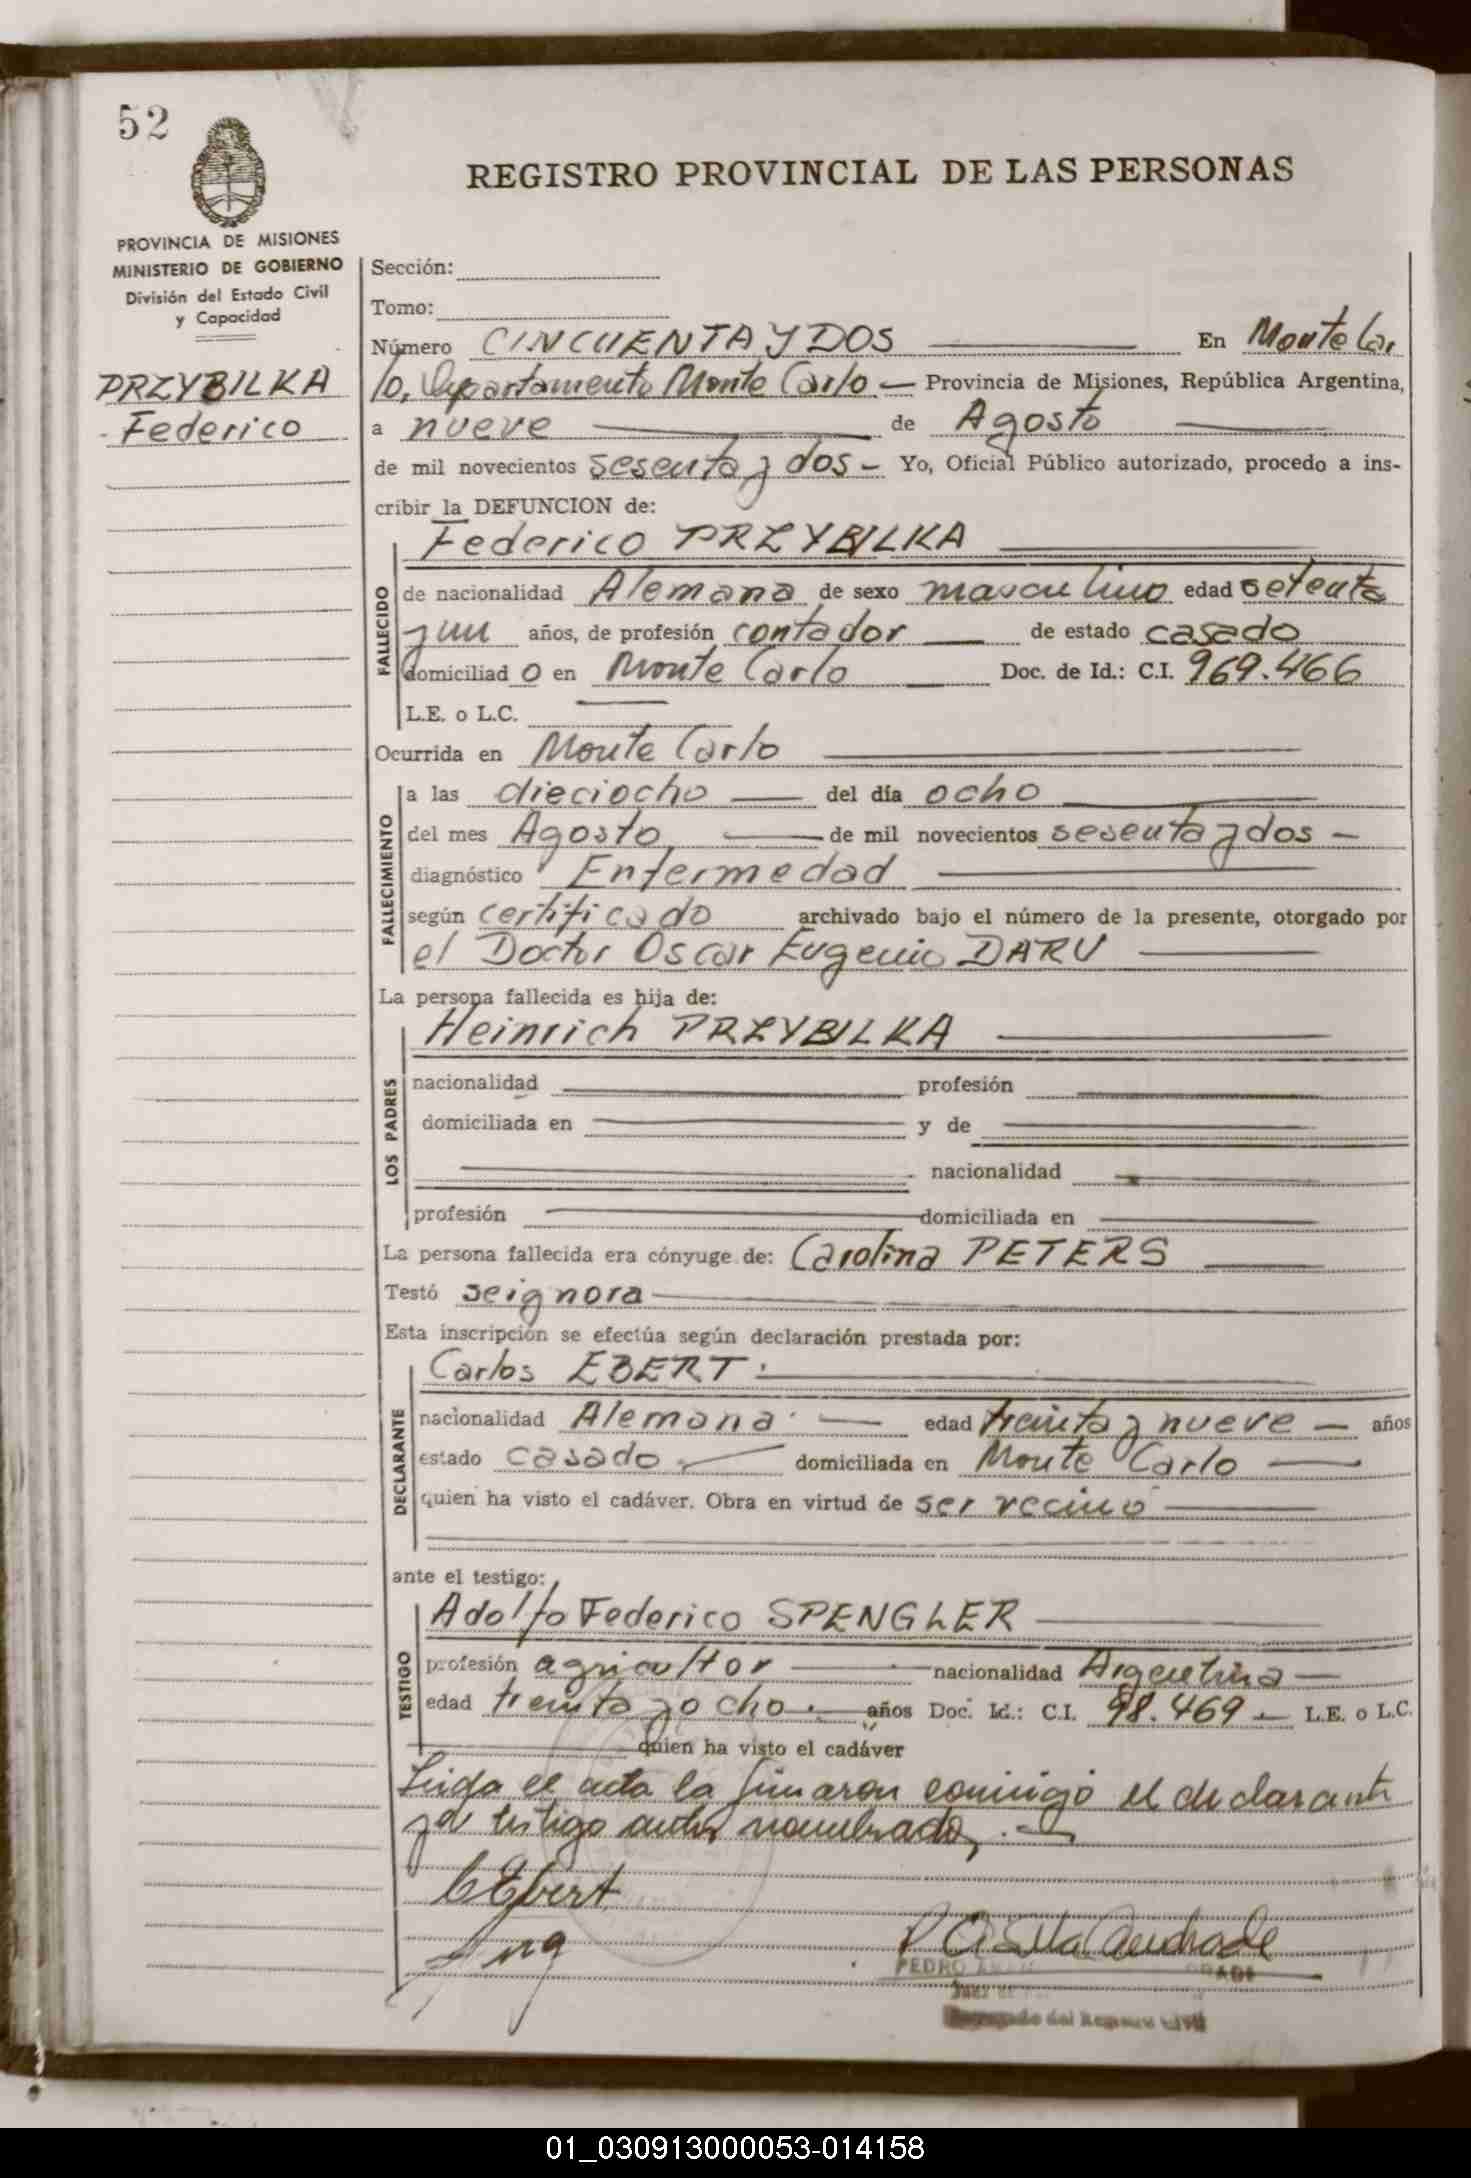 52
REGISTRO PROVINCIAL DE LAS PERSONAS
PROVINCIA DE MISIONES
MINISTERIO DE GOBIERNO
División del Estado Civil
y Capacidad
PRZYBILKA
Federico
Sección:
Tomo:
Número CINCUENTA Y DOS En Monte Car
lo, Departamento Monte Carlo — Provincia de Misiones, República Argentina,
a nueve de Agosto
de mil novecientos sesenta y dos - Yo, Oficial Público autorizado, procedo a ins-
cribir la DEFUNCION de:
Federico PRZYBILKA
FALLECIDO
de nacionalidad Alemana de sexo masculino edad setenta
y un años, de profesión contador de estado casado
domiciliad o en Monte Carlo Doc. de Id.: C.I. 969.466
L.E. o L.C.
Ocurrida en Monte Carlo
FALLECIMIENTO
a las dieciocho del día ocho
del mes Agosto de mil novecientos sesenta y dos -
diagnóstico Enfermedad
según certificado archivado bajo el número de la presente, otorgado por
el Doctor Oscar Eugenio DARU
La persona fallecida es hija de:
Heinrich PRZYBILKA
LOS PADRES
nacionalidad profesión
domiciliada en y de
nacionalidad
profesión domiciliada en
La persona fallecida era cónyuge de: Carolina PETERS
Testó se ignora
Esta inscripción se efectúa según declaración prestada por:
Carlos EBERT
DECLARANTE
nacionalidad Alemana edad treinta y nueve - años
estado casado domiciliada en Monte Carlo
quien ha visto el cadáver. Obra en virtud de ser vecino
ante el testigo:
Adolfo Federico SPENGLER
TESTIGO
profesión agricultor nacionalidad Argentina
edad treinta y ocho años Doc. Id.: C.I. 98.469 - L.E. o L.C.
quien ha visto el cadáver
Leida el acta la firmaron conmigo el declarante
y el testigo antes nombrado
CEbert
PEDRO
Delegado del Registro Civil
01_030913000053-014158